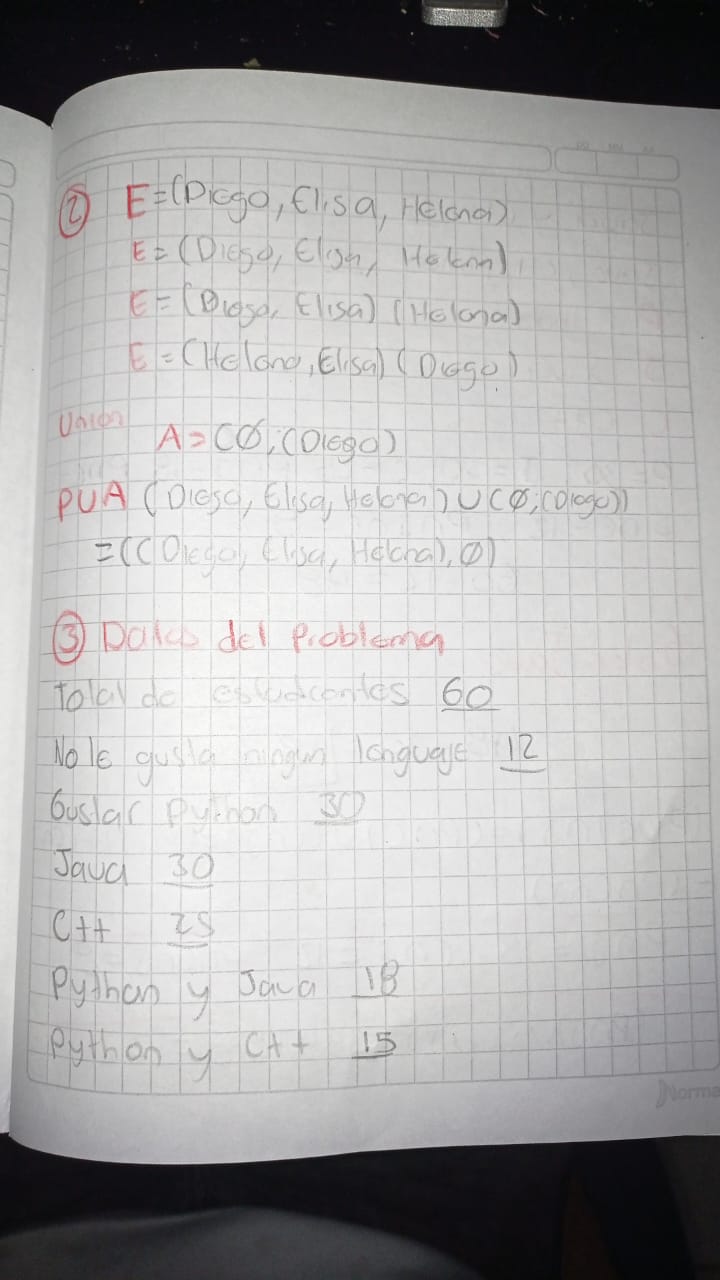 ② E=(Diego, Elisa, Helena)
E=(Diego, Elisa, Helena)
E=(Diego, Elisa) (Helena)
E=(Helena, Elisa) (Diego)
Union
A=(Ø, (Diego)
PUA (Diego, Elisa, Helena) U (Ø, (Diego))
=((Diego, Elisa, Helena), Ø)
③ Datos del Problema
Total de estudiantes 60
No le gusta ningun lenguaje 12
Gustar Python 30
Java 30
C++ 25
Python y Java 18
Python y C++ 15
Norma